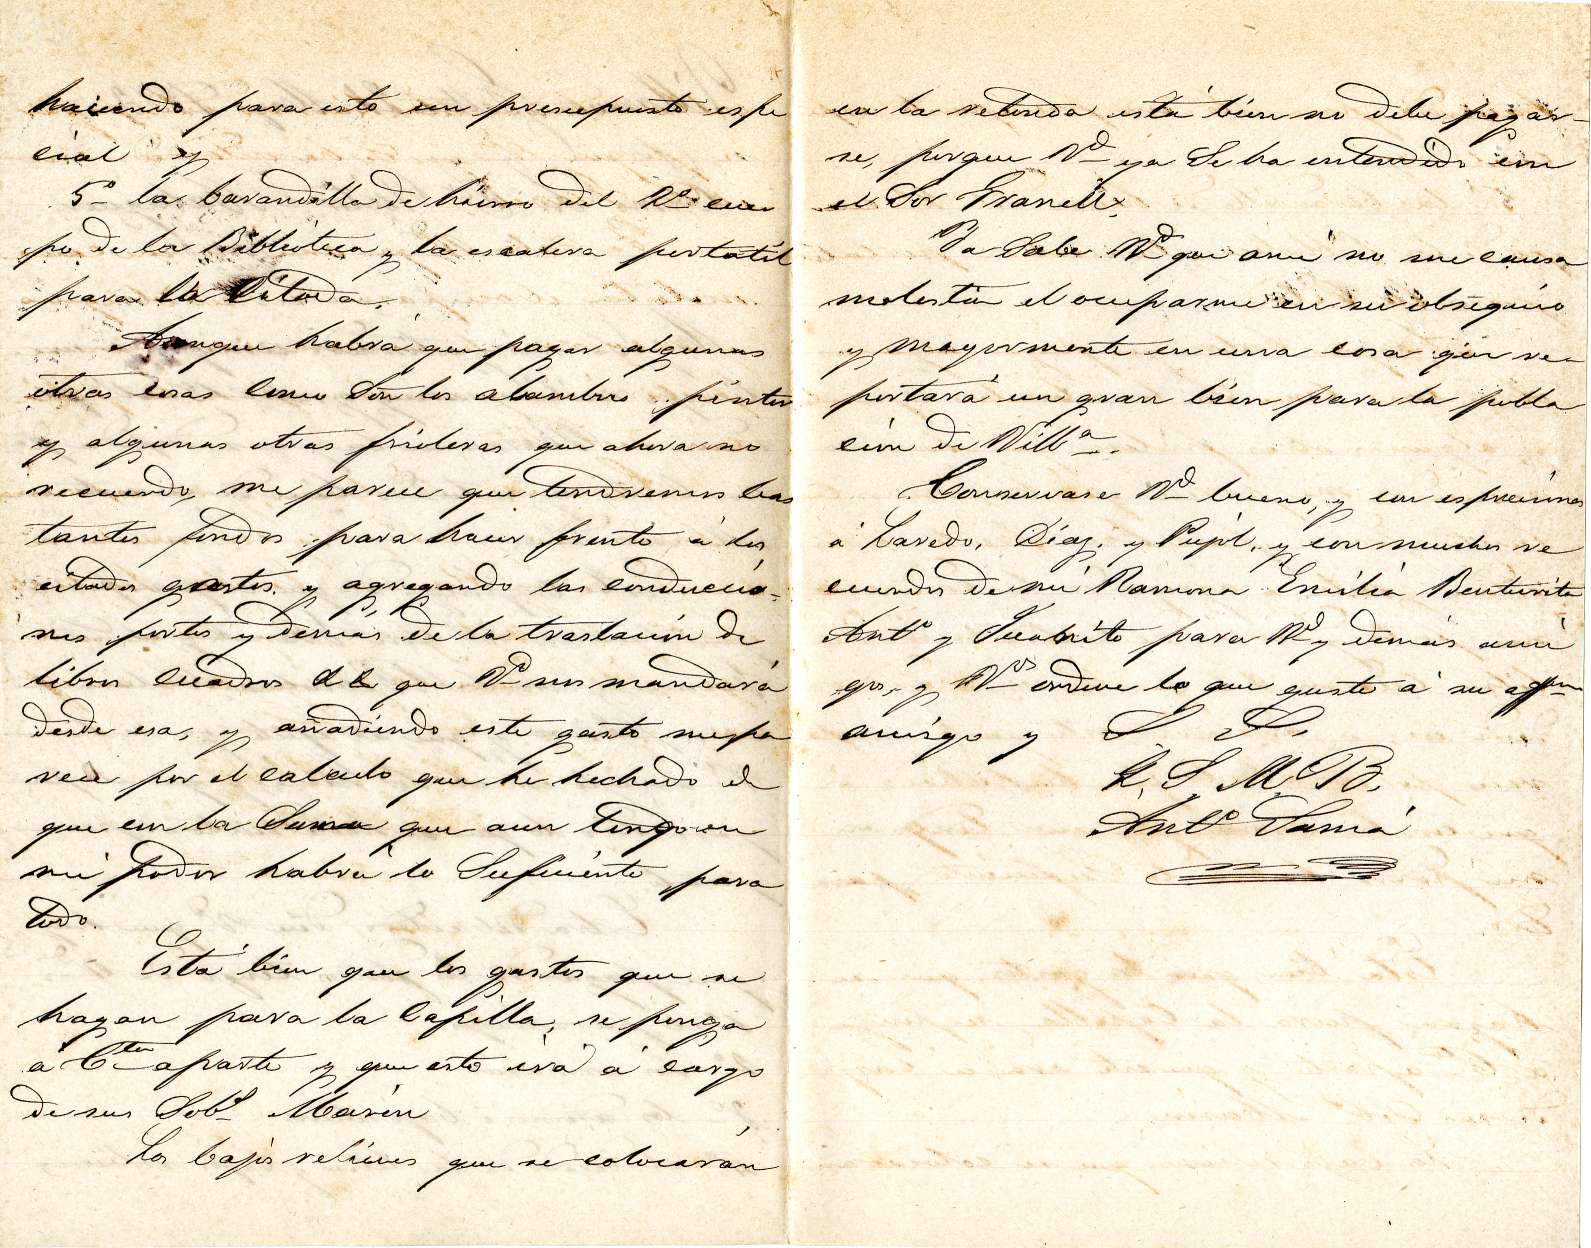 haciendo para esto un presupuesto espe
cial y
5º la barandilla de hierro del 2º cuer
po de la Biblioteca y la escalera portatil
para la citada.
Aunque habrá que pagar algunas
otras cosas como son los alambres, pintor
y algunas otras frioleras que ahora no
recuerdo, me parece que tendremos bas
tantes fondos para hacer frente á los
citados gastos, y agregando las conduccio-
nes, portes y demás de la traslacion de
libros cuadros &&& que Vd nos mandará
desde esa, y añadiendo este gasto me pa
rece por el calculo que he hechado de
que con la Suma que aun tengo en
mi podor habrá lo Suficiente para
todo.
Está bien que los gastos que se
hagan para la Capilla, se ponga
á Cta aparte y que esto irá á cargo
de sus Sobs Marin
Los bajos relieves que se colocarán
en la rotonda está bien no debe pagar-
se, porque Vd ya Se ha entendido con
el Sor Granell.
Ya Sabe Vd que ami no me causa
molestia el ocuparme en su obsequio
y mayormente en una cosa que re-
portará un gran bien para la pobla
cion de Villa.
Conservase Vd bueno, y con espreciones
á Laredo, Diaz, y Pujol, y con muchos re
cuerdos de mi Ramona Emilia Benturita
Antº y Juanito para Vd y demás ami
gos, y Vds ordene lo que guste á su affmo
amigo y S. S.
Q. S. M. B.
Antº Samá